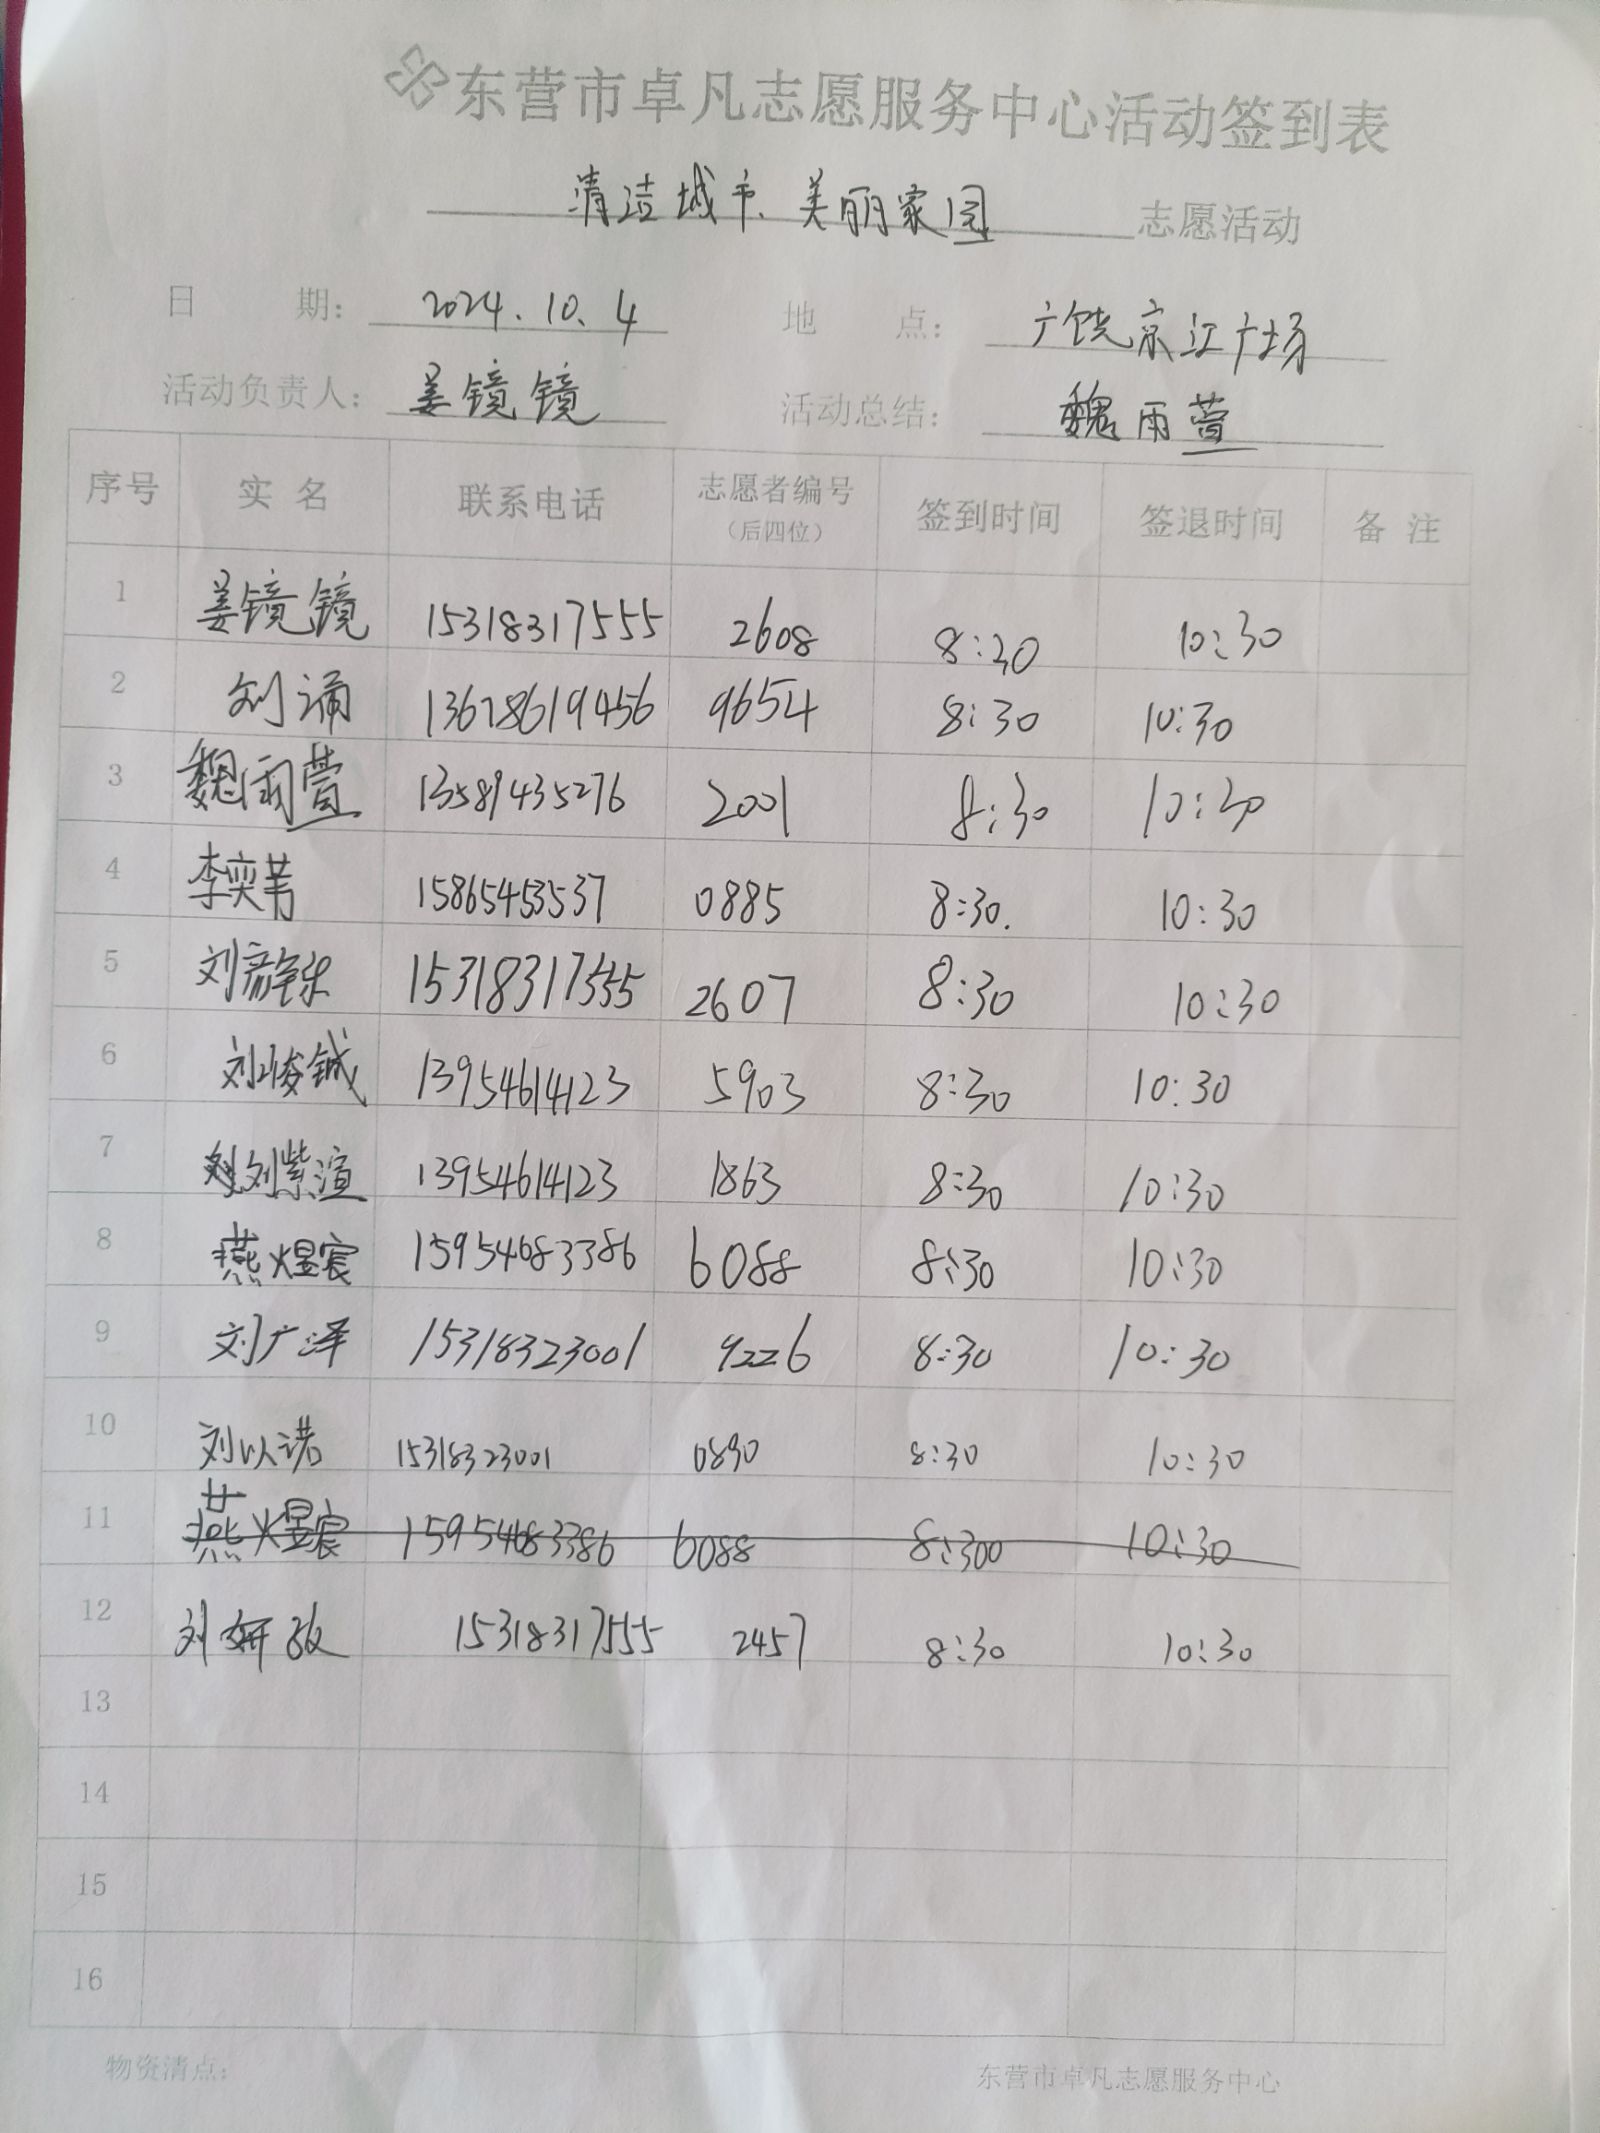 东营市卓凡志愿服务中心活动签到表
清洁城市、美丽家园 志愿活动
日 期： 2024.10.4 地 点： 广饶京江广场
活动负责人： 姜镜镜 活动总结： 魏雨萱
序号 实名 联系电话 志愿者编号（后四位） 签到时间 签退时间 备注
1 姜镜镜 15318317555 2608 8:30 10:30
2 刘诵 13678619456 9654 8:30 10:30
3 魏雨萱 13589435276 2001 8:30 10:30
4 李奕苇 15865453537 0885 8:30. 10:30
5 刘 15318317555 2607 8:30 10:30
6 刘峻铖 13954614123 5903 8:30 10:30
7 刘紫渲 13954614123 1863 8:30 10:30
8 燕煜宸 15954683386 6088 8:30 10:30
9 刘广泽 15318323001 9226 8:30 10:30
10 刘以诺 15318323001 0890 8:30 10:30
11 燕煜宸 15954683386 6088 8:300 10:30
12 刘妍 15318317555 2457 8:30 10:30
13
14
15
16
物资清点： 东营市卓凡志愿服务中心